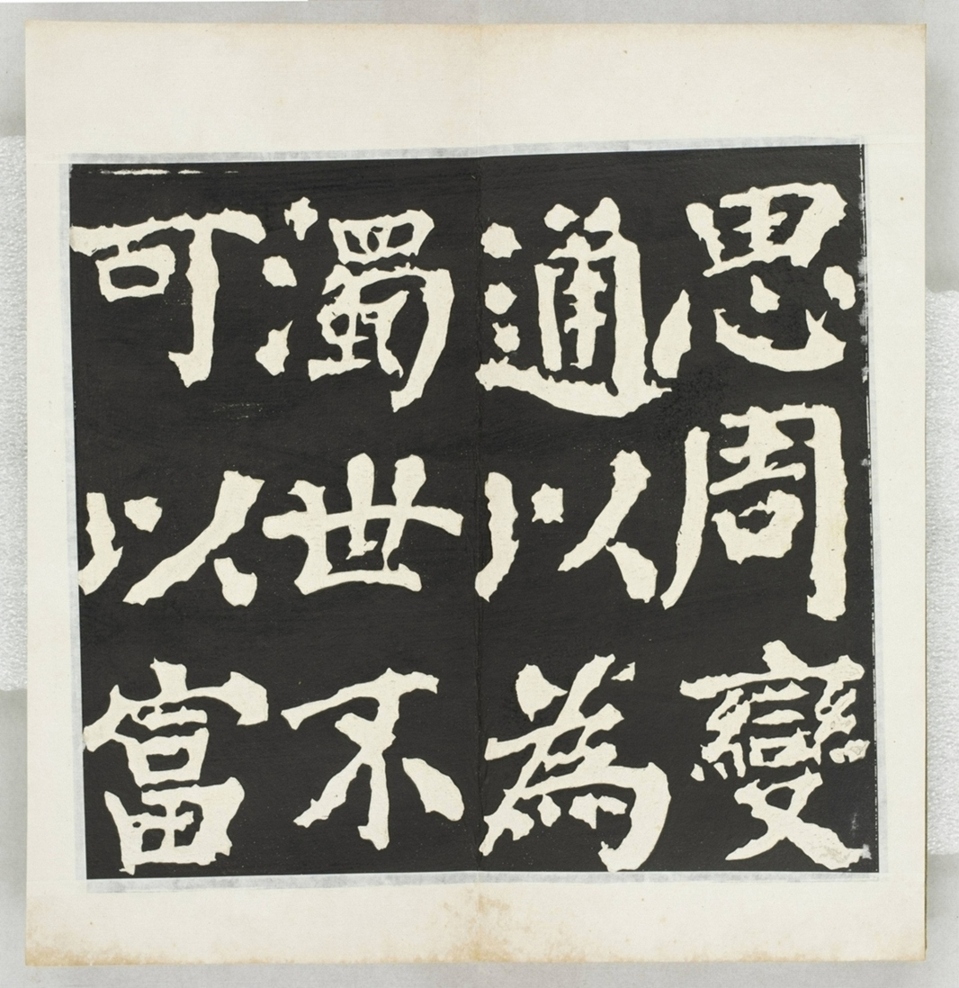 思周變
通以為
濁世不
可以富